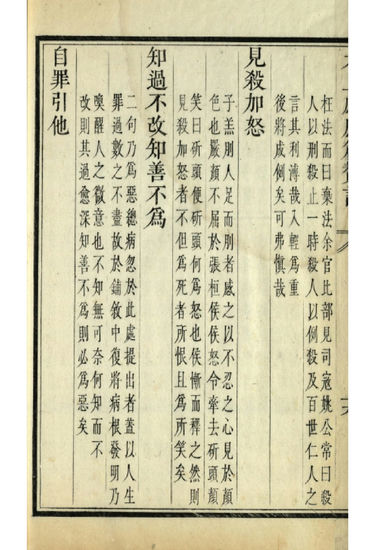 枉法而曰棄法余官比部見司寇姚公常曰殺
人以刑殺止一時殺人以例殺及百世仁人之
言其利溥哉入輕爲重
後將成例矣可弗慎哉
見殺加怒
子羔刖人足而刖者感之以不忍之心見於顏
色也嚴顏不屈於張桓侯侯怒令牽去斫頭顏
笑曰斫頭便斫頭何爲怒也侯慚而釋之然則
見殺加怒者不但爲死者所恨且爲所笑矣
知過不改知善不爲
二句乃爲惡總病忽於此處提出者蓋以人生
罪過數之不盡故於鋪敘中復將病根發明乃
喚醒人之微意也不知無可奈何知而不
改則其過愈深知善不爲則必爲惡矣
自罪引他